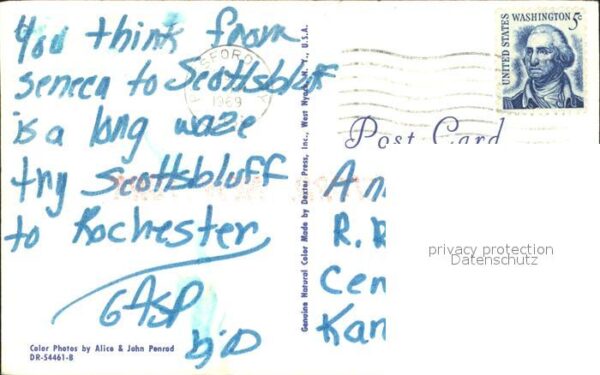 You think from
seneca to Scottsbluff
is a long waze
try Scottsbluff
to Rochester
GASP
Color Photos by Alice & John Penrod
DR-54461-B
Genuine Natural Color Made by Dexter Press, Inc., West Nyack, N. Y., U.S.A.
1969
UNITED STATES
WASHINGTON 5c
Post Card
An
R. R
Cen
Kan
privacy protection
Datenschutz